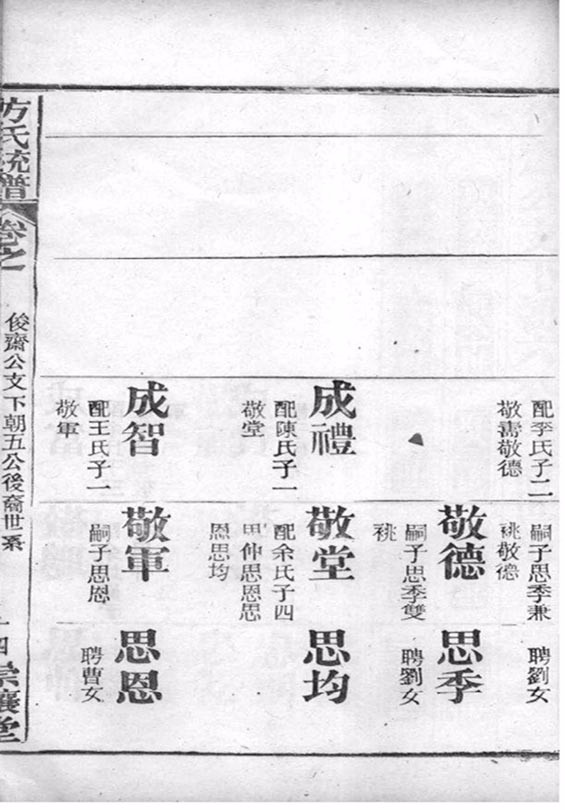 配李氏子二
敬壽敬德
嗣子思季兼
祧敬德
聘劉女
敬德
嗣子思季雙
祧
思季
聘劉女
成禮
配陳氏子一
敬堂
敬堂
配余氏子四
思仲思恩思
恩思均
思均
成智
配王氏子一
敬軍
敬軍
嗣子思恩
思恩
聘曹女
方氏統譜
卷之
俊齋公文下朝五公後裔世系
四
崇讓堂